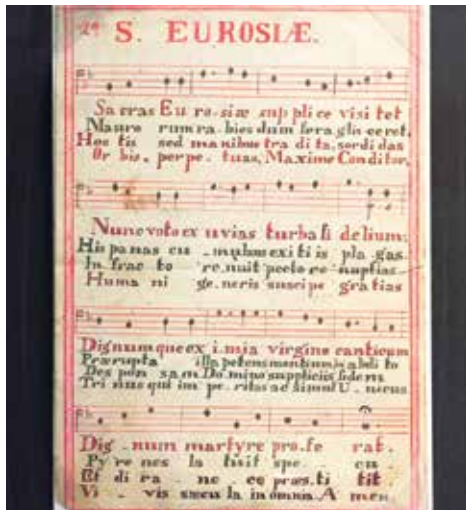 24 S. EUROSIÆ.
Sa cras Eu ro- siæ sup pli ce visi tet
Mauro rum ra- bies dum fera glis ce ret.
Hos tis sed ma nibus tra di ta, sordi das
Or bis . perpe . tuas, Maxime Conditor,
Nunc voto ex uvias turba fi delium:
His panas cu - mulans exi ti is pla gas.
In frac to re nuit pecto re nuptias
Huma ni ge. neris suscipe gratias
Dignumque ex i. mia virgine canticum
Prærupta illa petens montium in abdi to
Des pon sam Do mino suppliciis fidem
Tri nus qui im pe. ritas ac simul U . nicus
Dig - num martyre pro - fe rat.
Py re nes la tuit spe cu
Et di ra ne ce præs. ti tit
Vi - vis sæcu la in omnia. A men.